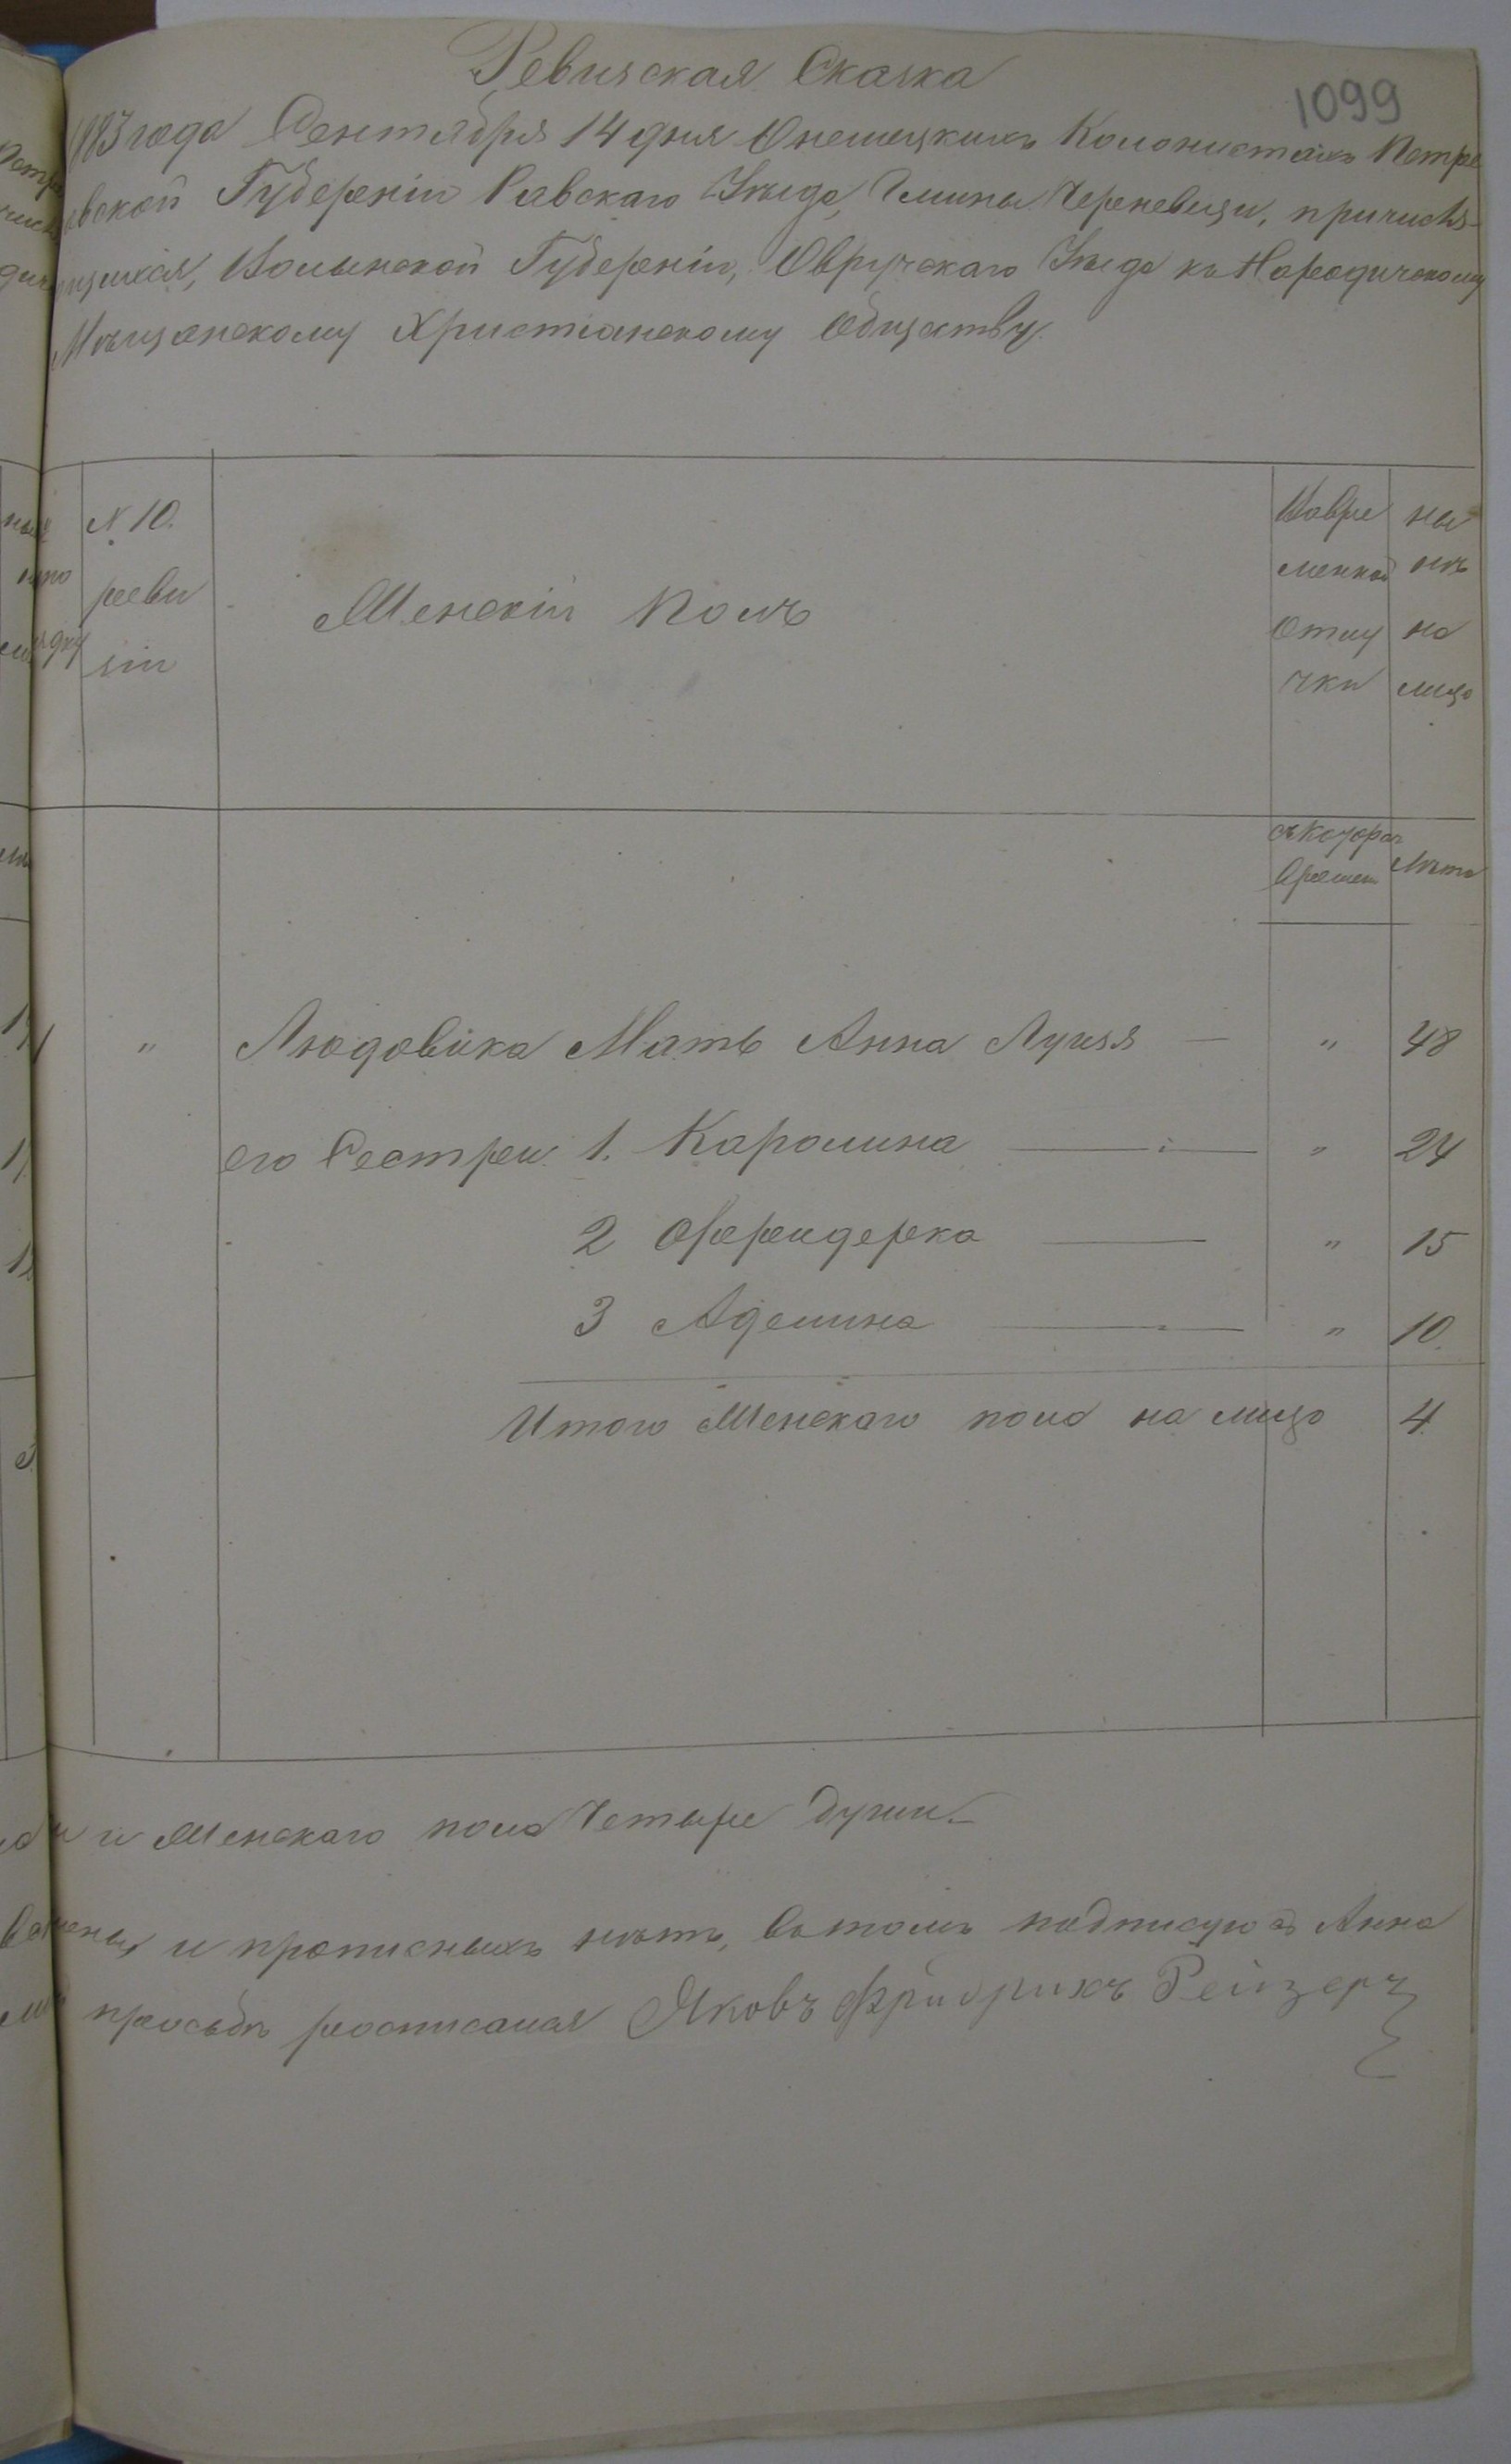 Ревизская Сказка
1099
1883 года Сентября 14 дня О немецкихъ Колонистахъ Петро
вской Губерніи Равскаго Уѣзда, Гмины Череневецы, причисля-
ющихся, Волынской Губерніи, Овручскаго Уѣзда къ Народичскому
Мѣщанскому Христіанскому обществу.
N. 10. реви зіи
Женскій Полъ
Вовре менной отлу чки
ны нѣ на лицо
съ котораго времени
Лѣта
" Людовика Мать Анна Луиза — " 48
его Сестры 1. Каролина — " 24
2 Фрейдерека — " 15
3 Аделина — " 10.
Итого Женскаго пола на лицо 4.
и Женскаго пола Четыре души.
и прописныхъ нѣтъ, въ томъ подписуюсь Анна
просьбѣ росписался Яковъ Фридрихъ Рейзеръ